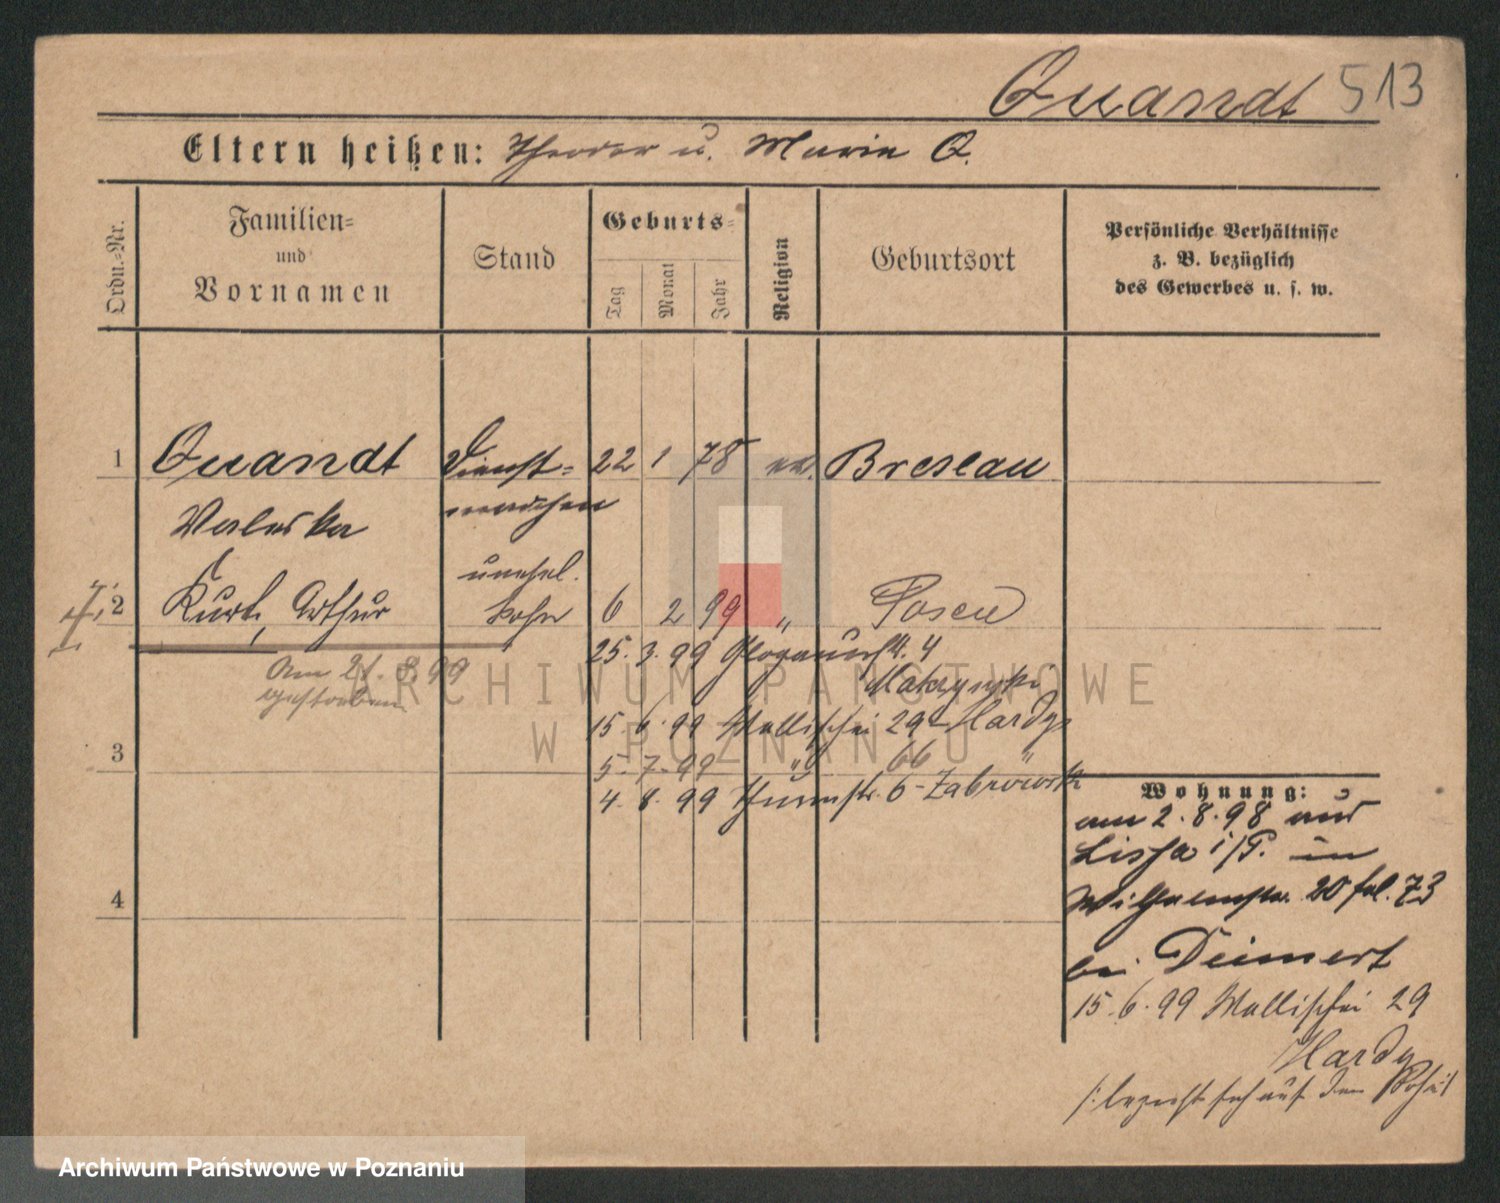 Quandt 513
Eltern heißen: Theodor u. Marie Q.
Ordn.-Nr.
Familien-
und
Vornamen
Stand
Geburts-
Tag
Monat
Jahr
Religion
Geburtsort
Persönliche Verhältnisse
z. B. bezüglich
des Gewerbes u. s. w.
1 Quandt Dienst- 22 1 78 ev. Breslau
Valeska mädchen
unehel.
2 Kurt, Arthur Sohn 6 2 99 " Posen
25. 3. 99 Glogauerstr. 4
am 21. 8. 99
gestorben
15. 6. 99 Wallischei 29 Hardy
3
5. 7. 99 " 66 "
4. 8. 99 Thurmstr. 6
4
Wohnung:
am 2. 8. 98 aus
Lissa i/P. in
Wilhelmstr. 20 fol. 73
bei Deimert
15. 6. 99 Wallischei 29
Hardy
/: bezieht sich auf den
ARCHIWUM PAŃSTWOWE
W POZNANIU
Archiwum Państwowe w Poznaniu